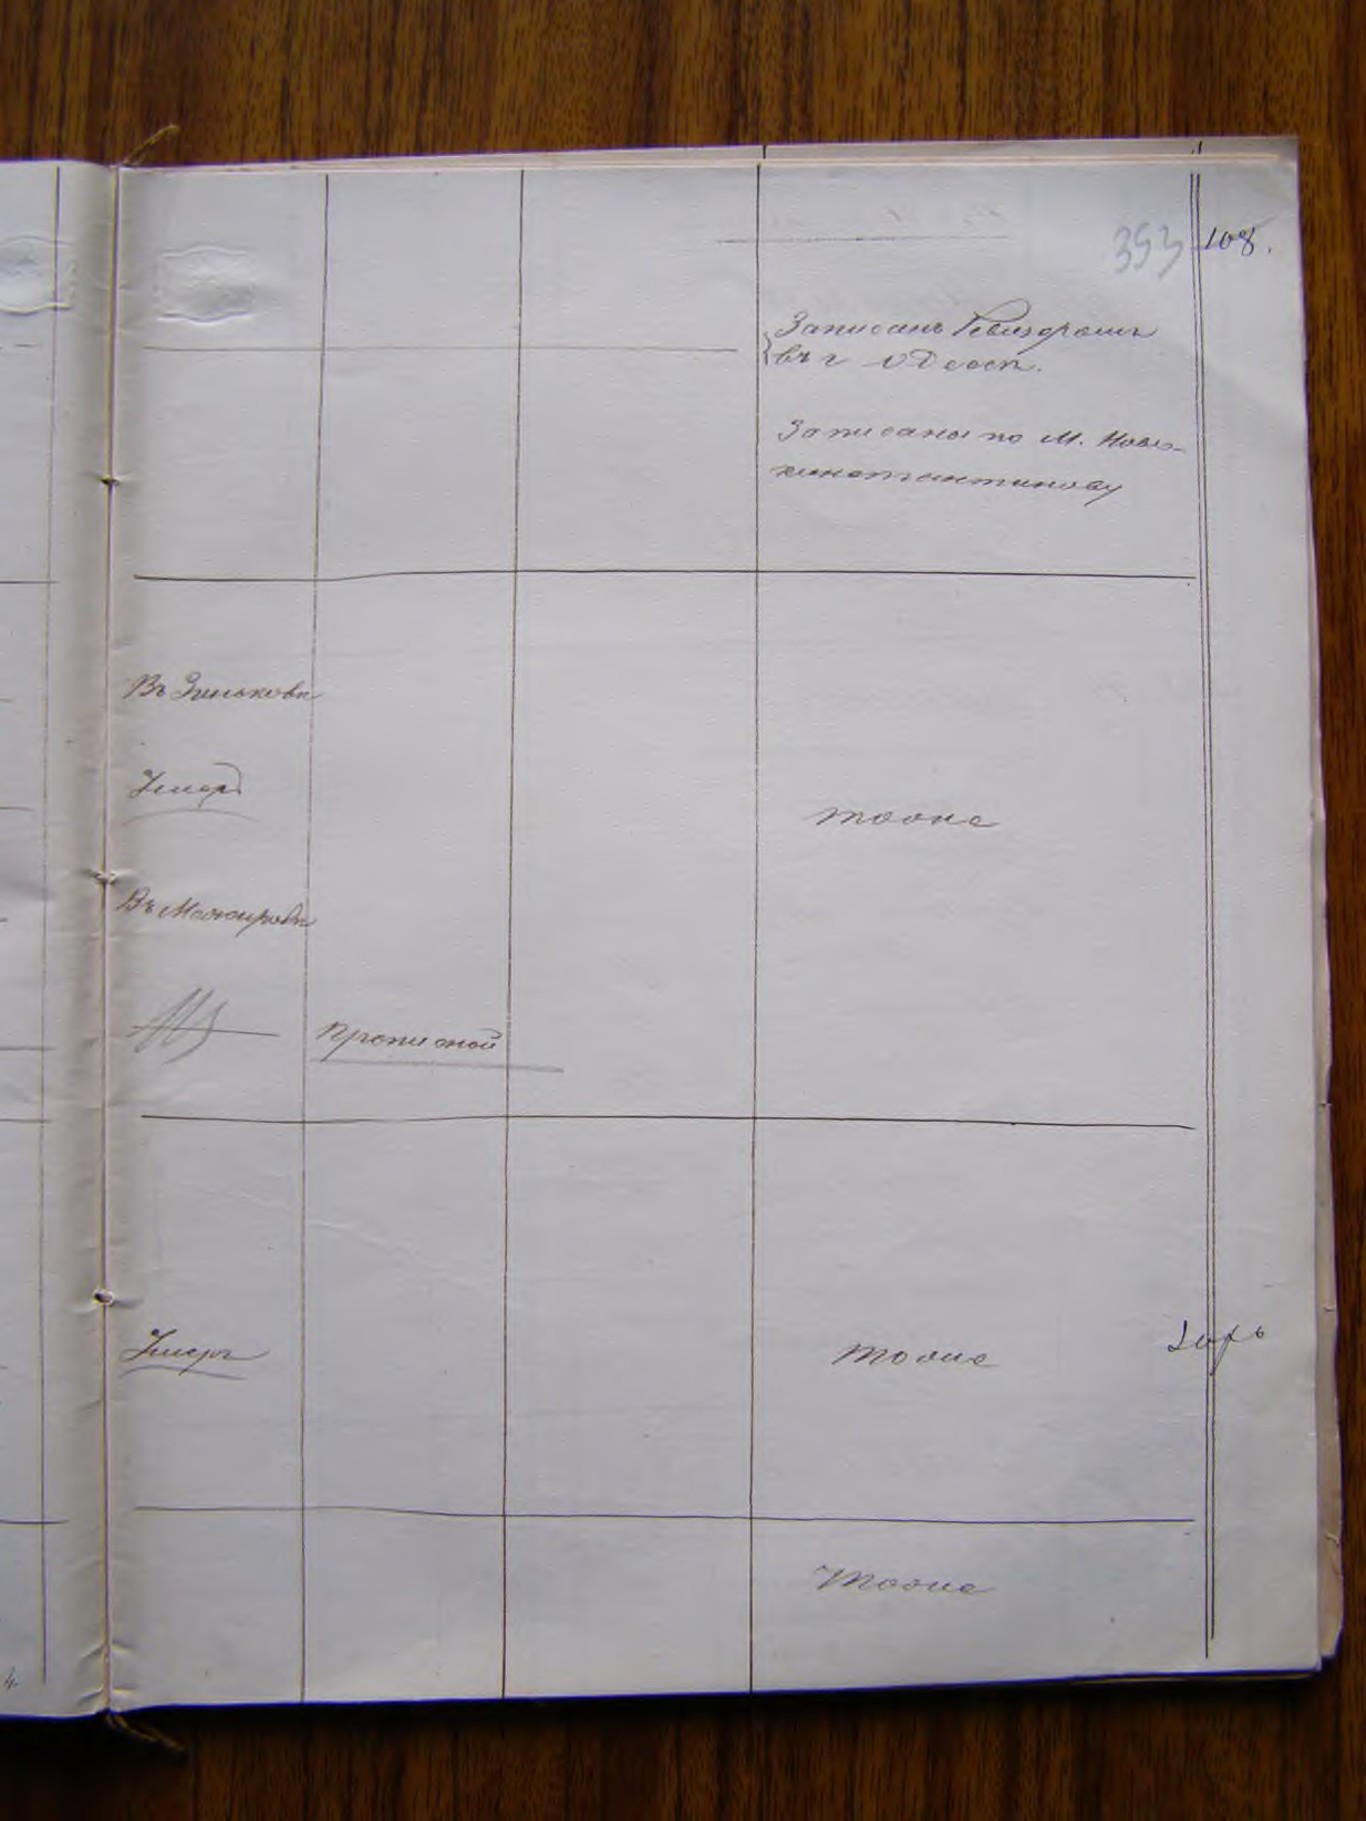 353 108.
Записанъ Ревизоромъ
въ г Одессѣ.
Записаны по М. Ново-
константинову
Въ Зиньковѣ
Умеръ
тоже
Въ Межировѣ
прописной
Умеръ
тоже
тоже